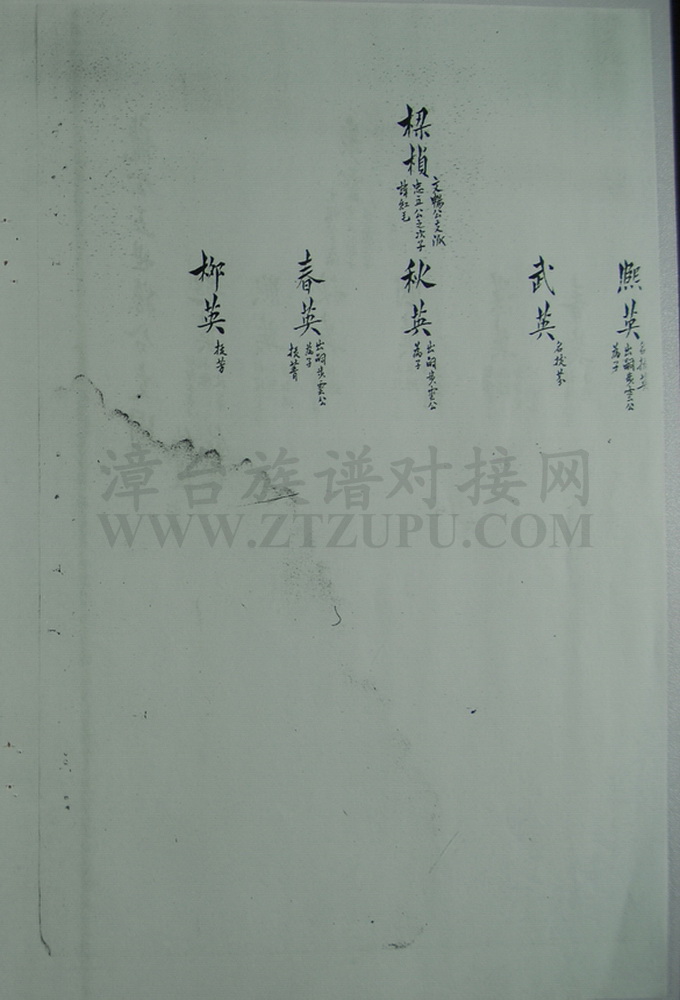 熙英
出嗣步雲公
為子
武英
名拔芬
樑楨
文暢公支派
忠立公之次子
諱紅毛
秋英
出嗣步雲公
為子
春英
出嗣步雲公
為子
拔菁
柳英
拔芳
漳台族谱对接网
WWW.ZTZUPU.COM